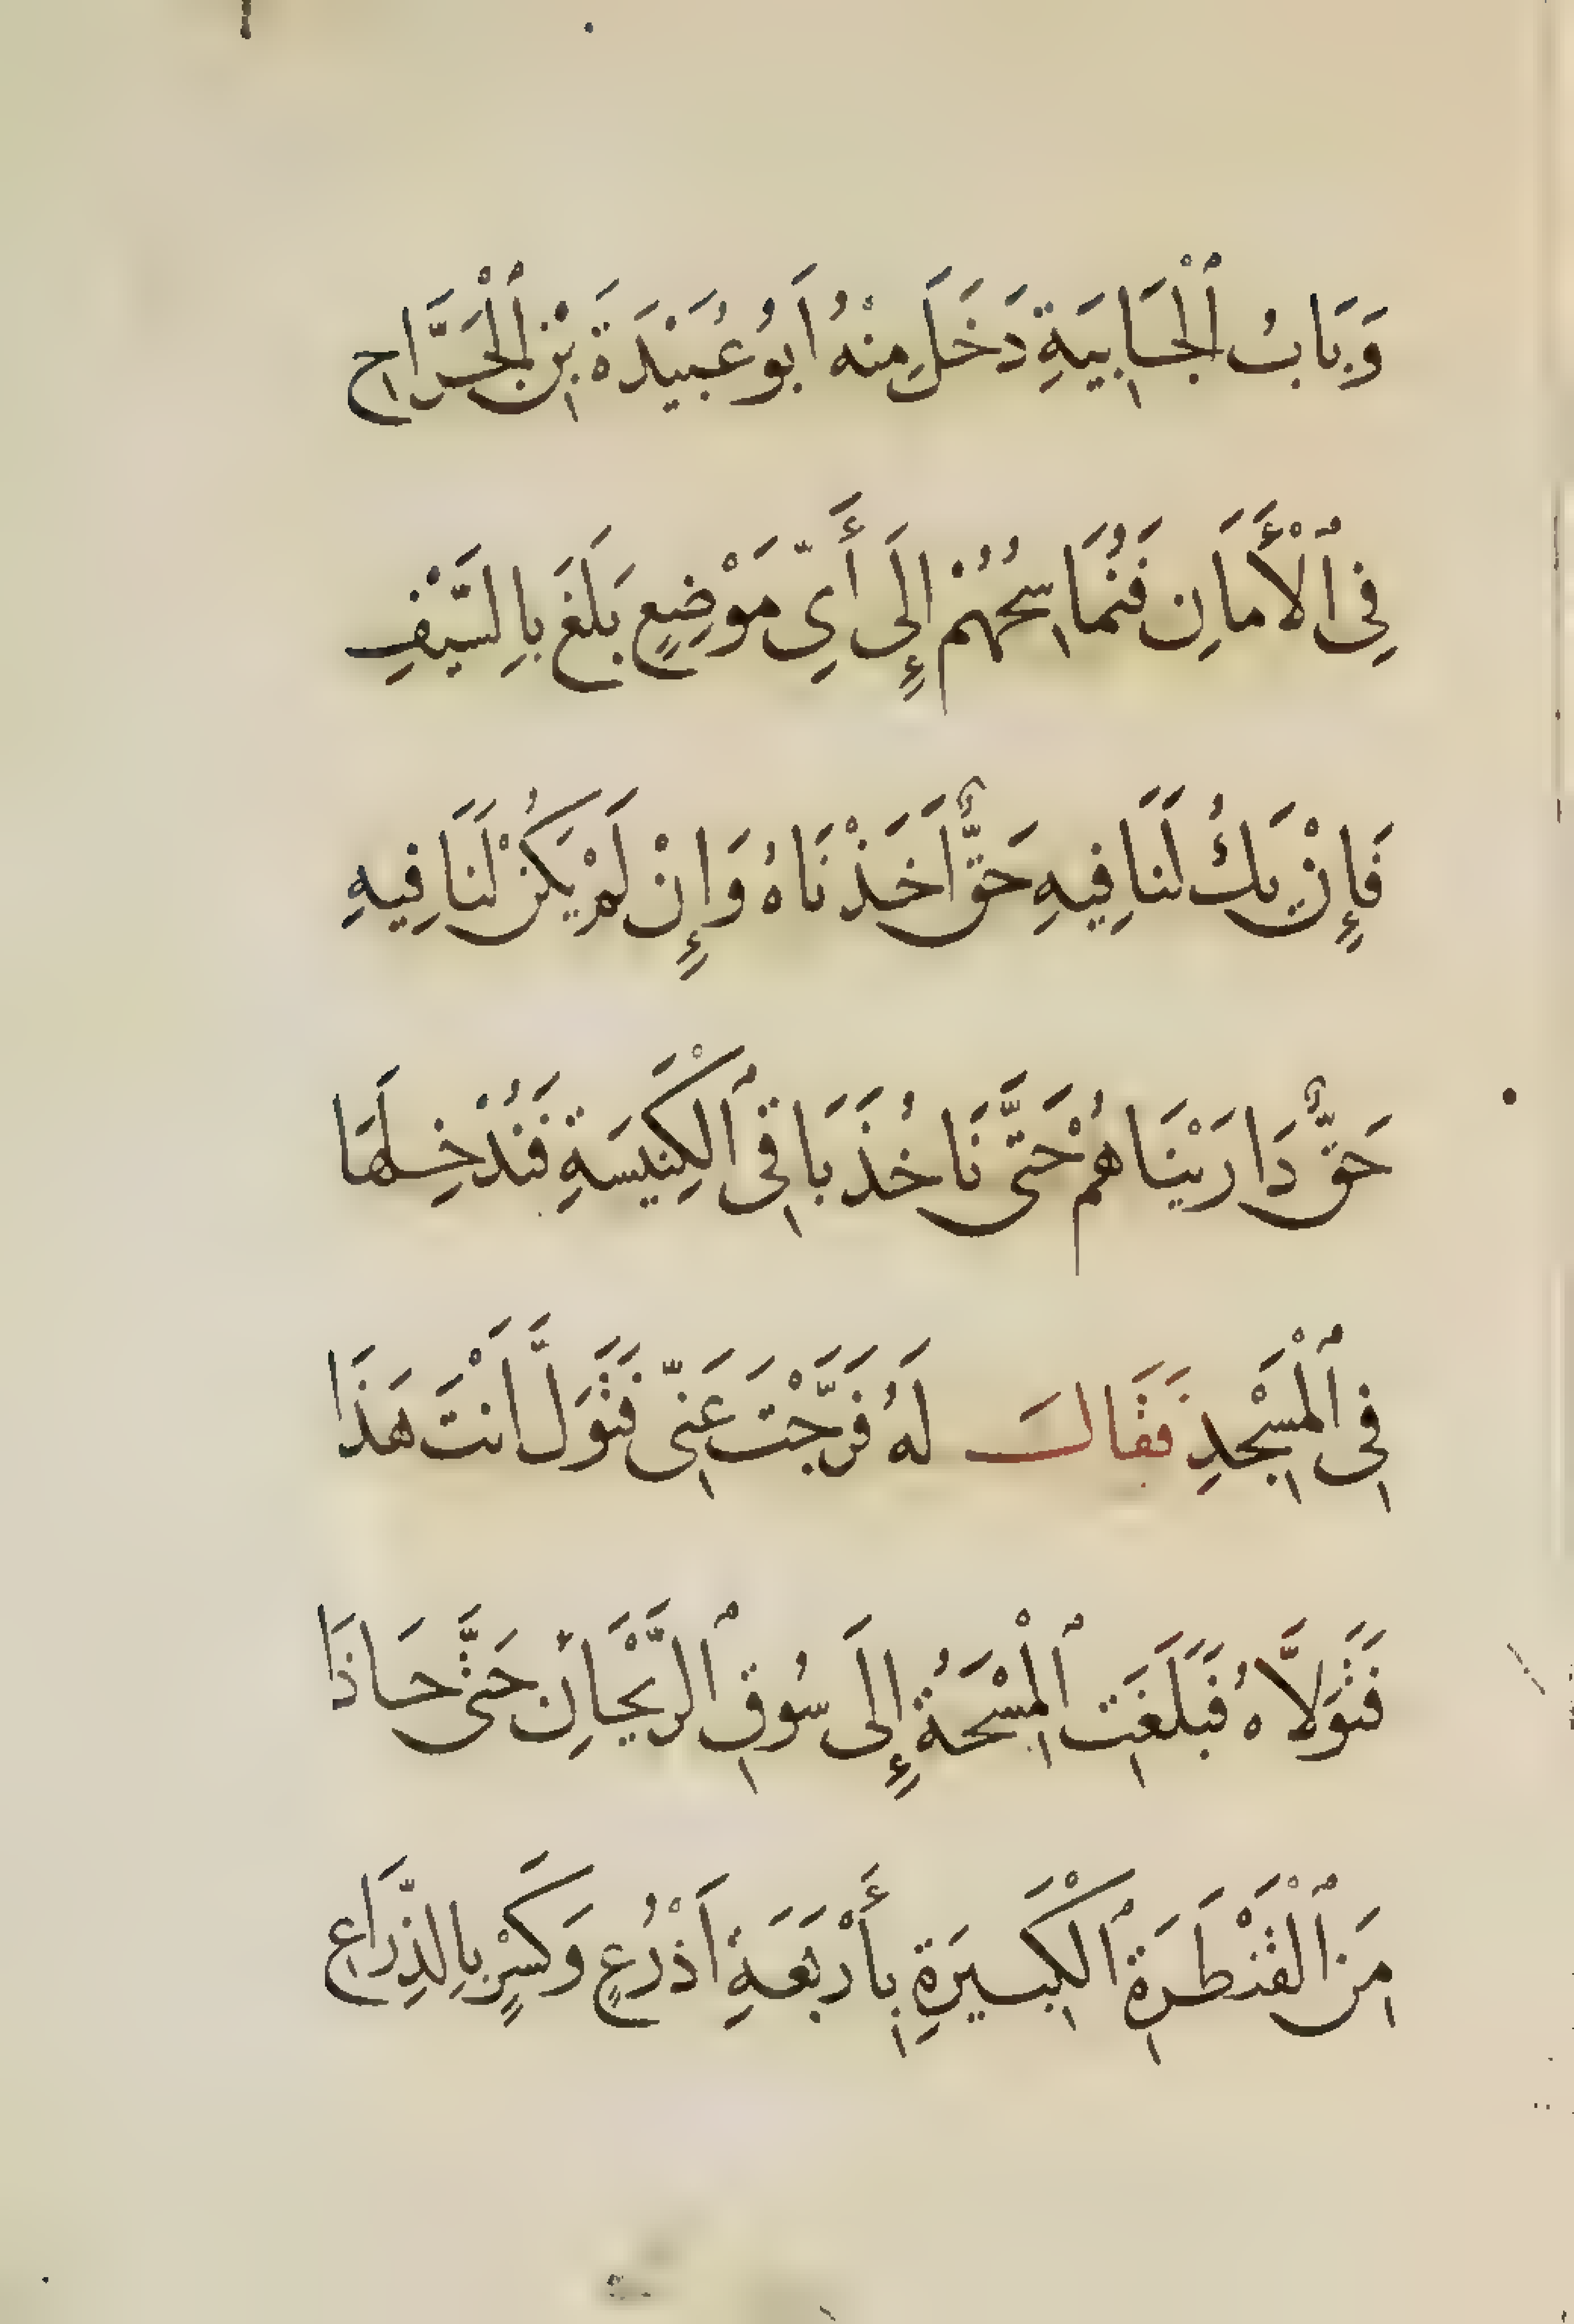 وَبَابُ ٱلْجَابِيَةِ دَخَلَ مِنْهُ اَبُو عُبَيْدَةَ بْنِ ٱلْجَرَّاح
فِى ٱلْأَمَانِ فَنُمَاسِحُهُمْ إِلَى أَيِّ مَوْضِعٍ بَلَغَ بِالسَّيْفِ
فَإِنْ يَكُ لَنَا فِيهِ حَقٌّ اَخَذْنَاهُ وَإِنْ لَمْ يَكُنْ لَنَا فِيهِ
حَقٌّ دَارَيْنَاهُمْ حَتَّى نَاخُذَ بَاقِى ٱلْكَنِيسَةِ فَنُدْخِلَهَا
فِى ٱلْمَسْجِدِ فَقَالَ لَهُ فَرَّجْتَ عَنِّى فَتَوَلَّ اَنْتَ هَذَا
فَتَوَلَّاهُ فَبَلَغَتِ ٱلْمِسْحَةُ إِلَى سُوقِ ٱلرَّيْحَانِ حَتَّى حَاذَا
مِنَ ٱلْقَنْطَرَةِ ٱلْكَبِيرَةِ بِأَرْبَعَةِ اَذْرُعٍ وَكَسْرٍ بِالذِّرَاعِ